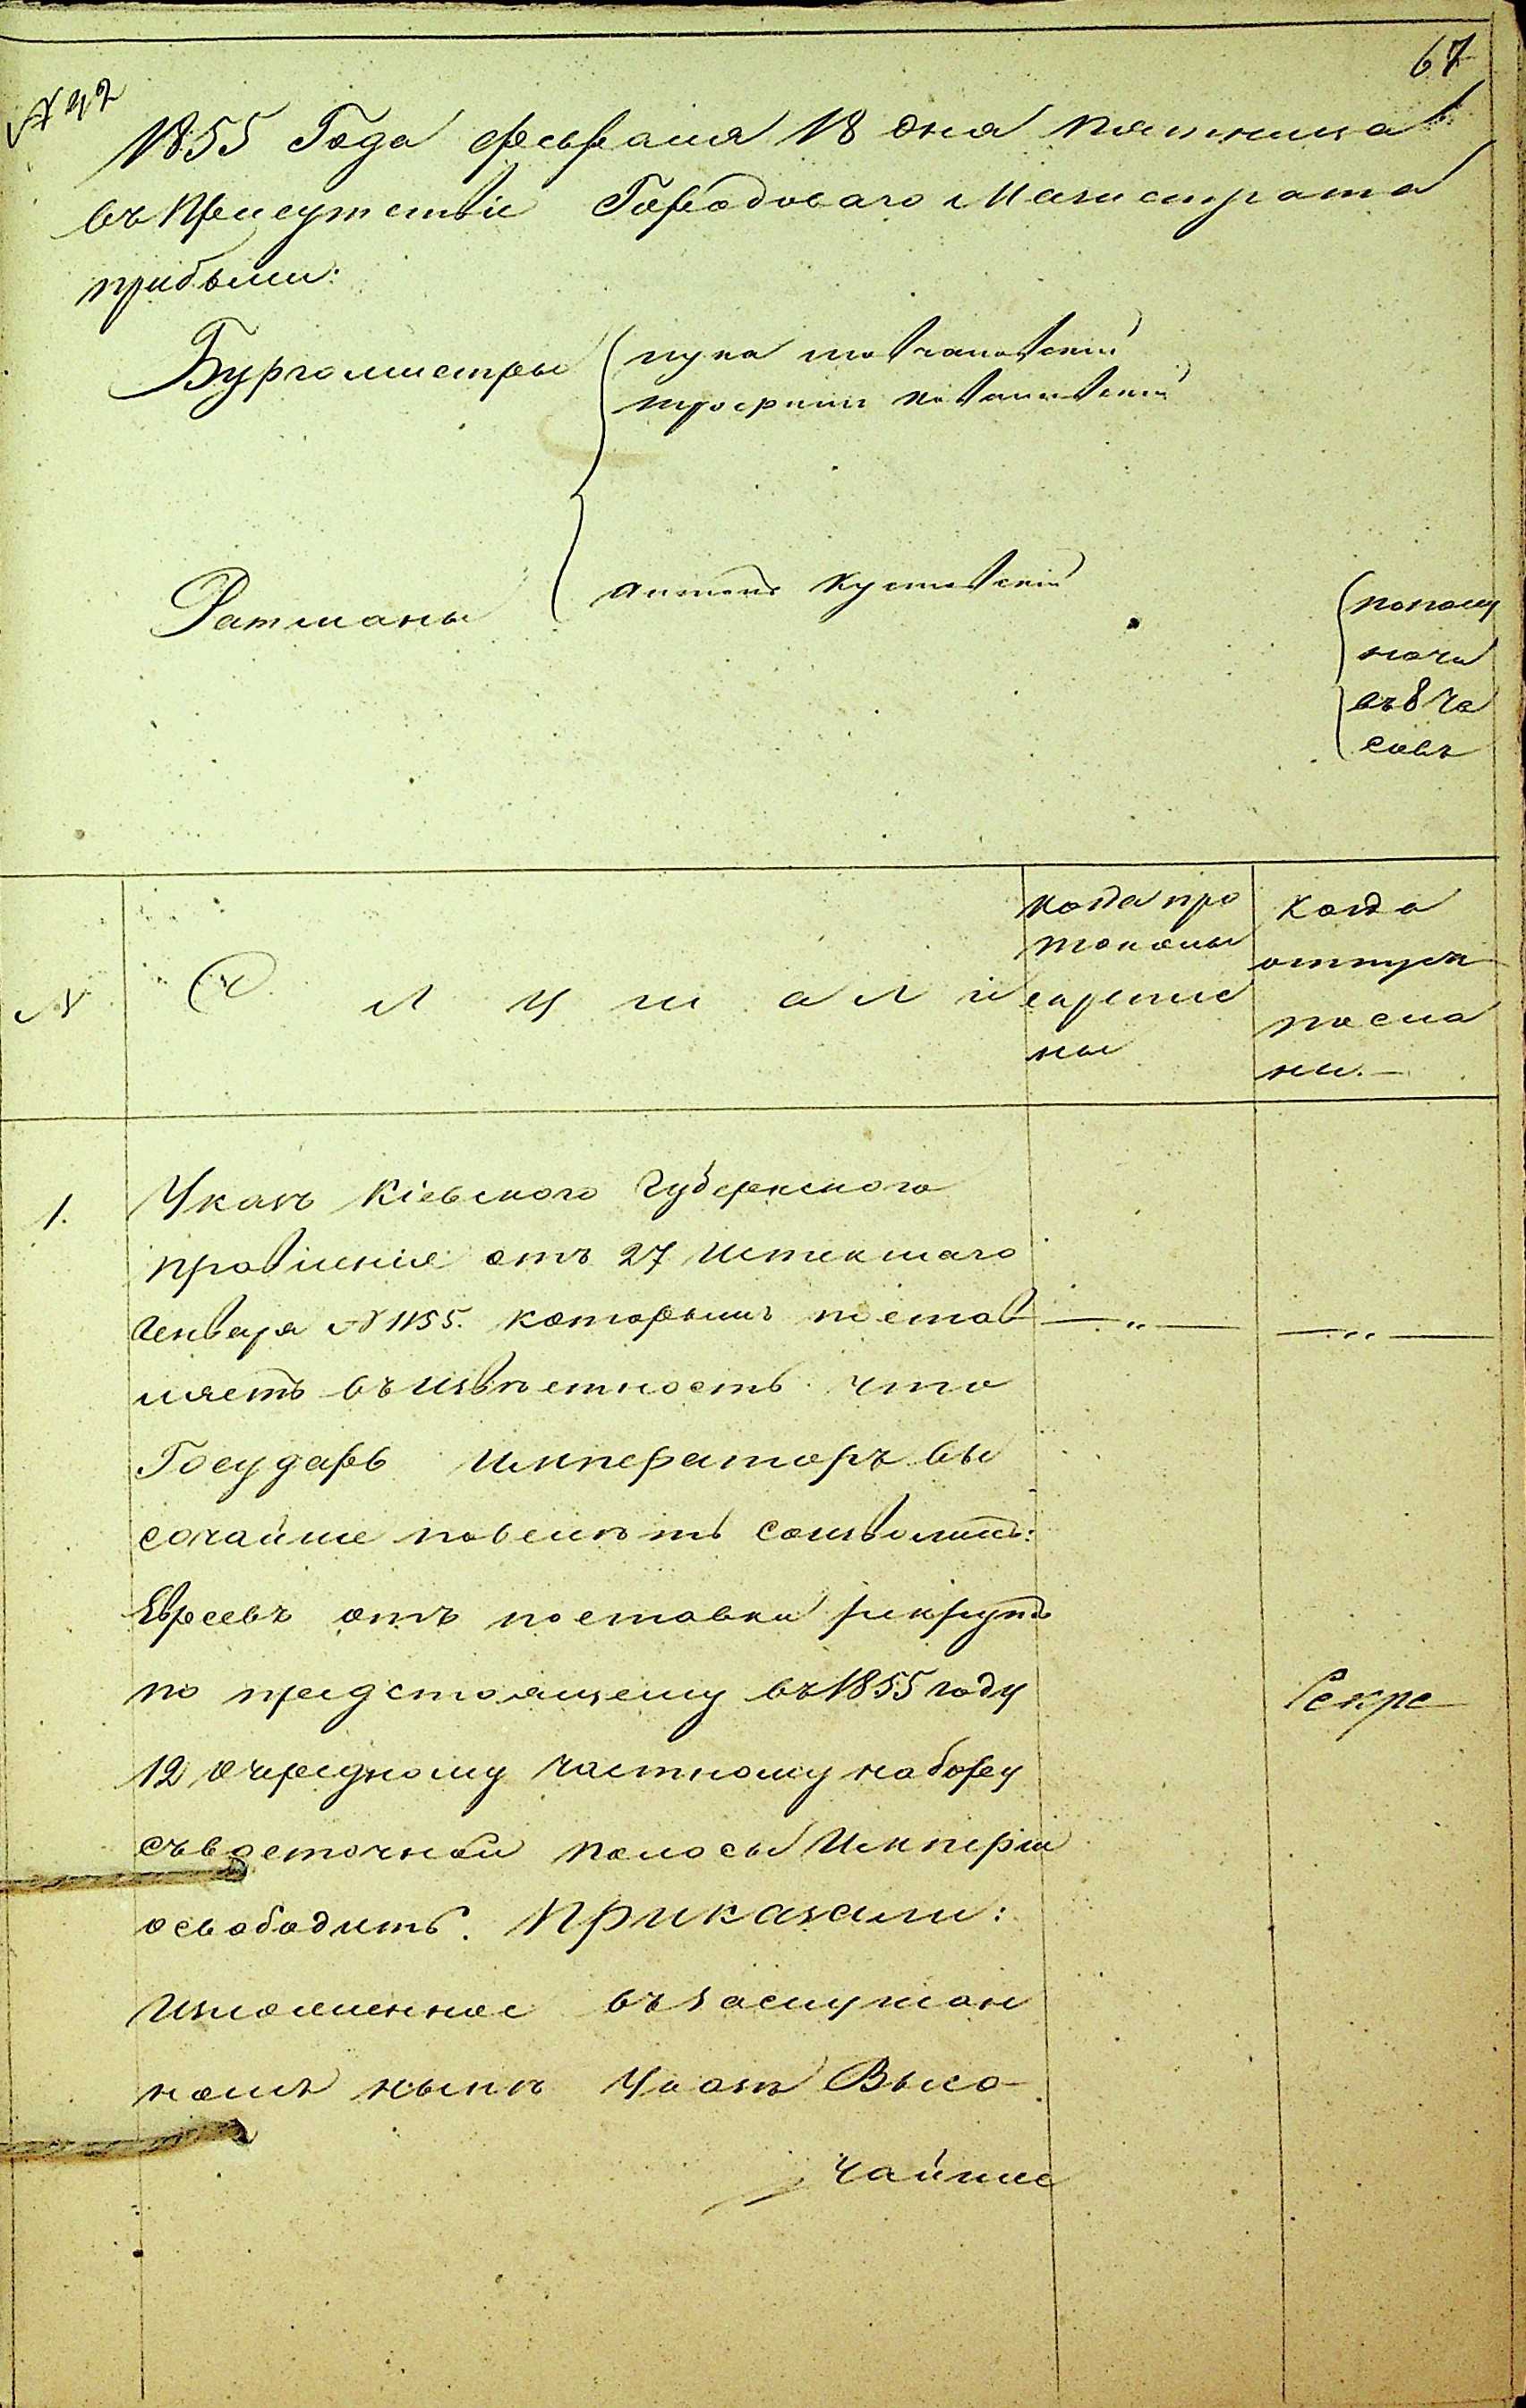 67
№ 42
1855 Года февраля 18 дня пятница
въ присутствіе Городоваго Магистрата
прибыли:
Бургомистры
Ратманы
Антонъ
въ 8 ча
совъ
№
Слушали
когда про
токолы
скрепле
ны
когда
отпуск
посла
ны. —
1.
Указъ Кіевского Губернского
правленія отъ 27 истекшаго
Генваря № 1155. которымъ постав
ляетъ въ извѣстность что
Государь Императоръ вы
сочайше повелѣть соизволилъ:
Евреевъ отъ поставки рекрутъ
по предстоящему въ 1855 году
12 очередному частному набору
съ восточной полосы Имперіи
освободить. Приказали:
Изложенное въ заслушан
номъ нынѣ Указѣ Высо-
чайше
— „ —
— „ —
Секре